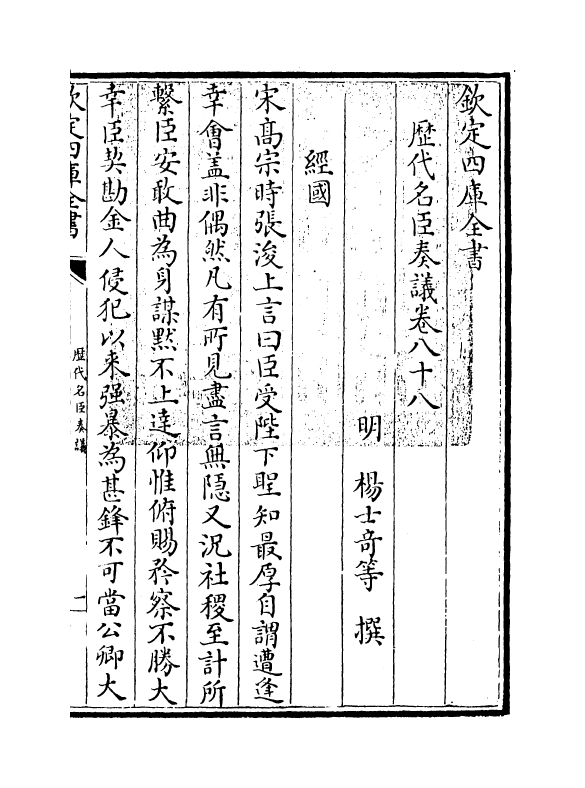 欽定四庫全書
歴代名臣奏議卷八十八
明 楊士竒等 撰
經國
宋髙宗時張浚上言曰臣受陛下聖知最厚自謂遭逢
幸會盖非偶然凡有所見盡言無隠又況社稷至計所
繫臣安敢曲為身謀黙不上達仰惟俯賜矜察不勝大
幸臣契勘金人侵犯以来强暴為甚鋒不可當公卿大
欽定四庫全書
歴代名臣奏議
一